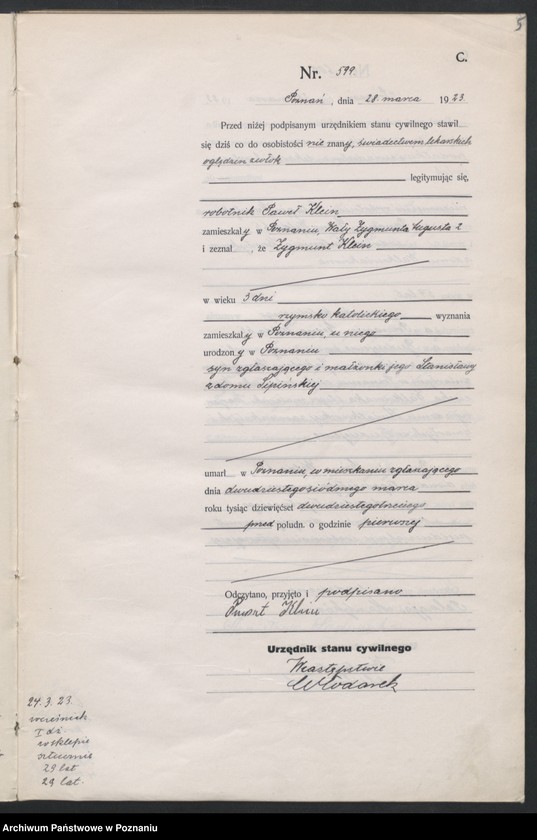 5
C.
Nr. 599.
Poznań, dnia 28 marca 1923
Przed niżej podpisanym urzędnikiem stanu cywilnego stawił
się dziś co do osobistości nie znany, świadectwem lekarskich
oględzin zwłok
legitymując się,
robotnik Paweł Klein
zamieszkały w Poznaniu, Wały Zygmunta Augusta 2
i zeznał, że Zygmunt Klein
w wieku 3 dni
rzymsko katolickiego wyznania
zamieszkały w Poznaniu, u niego
urodzony w Poznaniu
syn zgłaszającego i małżonki jego Stanisławy
z domu Lipińskiej
umarł w Poznaniu, w mieszkaniu zgłaszającego
dnia dwudziestego siódmego marca
roku tysiąc dziewięćset dwudziestego trzeciego
przed połudn. o godzinie pierwszej
Odczytano, przyjęto i podpisano
Klein
Urzędnik stanu cywilnego
W zastępstwie
Włodarek
24.3.23.
I dz.
w sklepie
29 lat
29 lat.
Archiwum Państwowe w Poznaniu